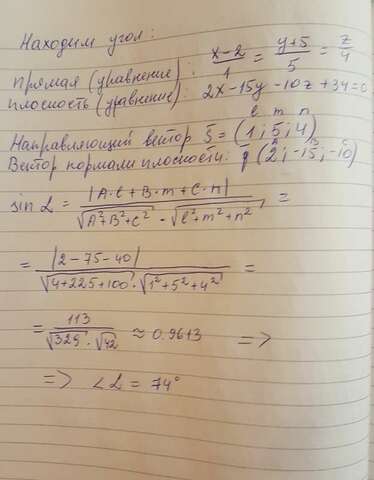 Находим угол:
Прямая (уравнение) x-2/1 = y+5/5 = z/4
плоскость (уравнение): 2x -15y -10z +34=0
l m n
Направляющий вектор S̄ = (1; 5; 4)
A B C
Вектор нормали плоскости: q̄ (2; -15; -10)
sin α = |A·l + B·m + C·n| / √A²+B²+C² · √l²+m²+n² =
= |2 - 75 - 40| / √4+225+100 · √1²+5²+4² =
= 113 / √329 · √42 ≈ 0.9613 =>
=> <α = 74°